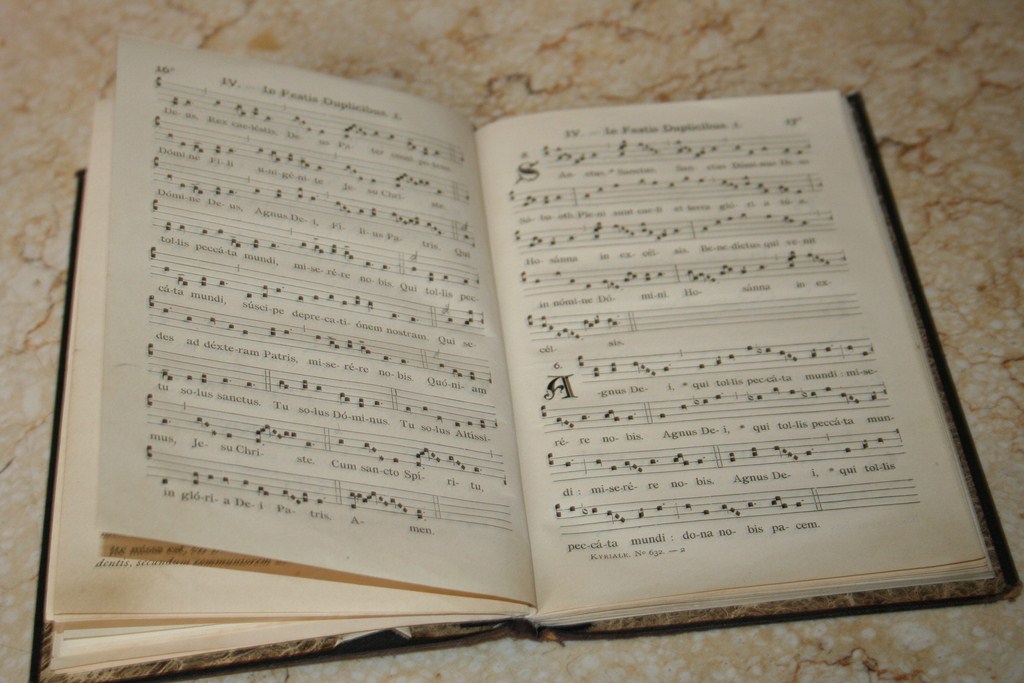 16*
IV. — In Festis Duplicibus. 1.
De- us, Rex cæ-léstis, De- us Pa- ter omní-pot-ens.
Dómi-ne Fi-li u-ni-gé-ni-te Je- su Chri- ste.
Dómi-ne De- us, Agnus De- i, Fi- li- us Pa- tris. Qui
tol-lis peccá-ta mundi, mi-se-ré-re no-bis. Qui tol-lis pec-
cá-ta mundi, súsci-pe depre-ca-ti- ónem nostram. Qui se-
des ad déxte-ram Patris, mi-se-ré-re no-bis. Quó-ni- am
tu so-lus sanctus. Tu so-lus Dó-mi-nus. Tu so-lus Altíssi-
mus, Je- su Chri- ste. Cum san-cto Spí- ri- tu,
in gló-ri- a De- i Pa- tris. A- men.
dentis, secundum
IV. — In Festis Duplicibus. 1.
17*
SAn-ctus, * Sanctus, San- ctus Dóminus De-us
Sá- ba- oth. Ple-ni sunt cæ-li et terra gló- ri- a tu- a.
Ho- sánna in ex-cél- sis. Be-ne-díctus qui ve-nit
in nómi-ne Dó- mi-ni. Ho- sánna in ex-
cél- sis.
6.
A-gnus De- i, * qui tol-lis pec-cá-ta mundi : mi-se-
ré- re no- bis. Agnus De- i, * qui tol-lis peccá-ta mun-
di : mi-se-ré- re no- bis. Agnus De- i, * qui tol-lis
pec-cá-ta mundi : do-na no- bis pa- cem.
KYRIALE. Nº 632. — 2